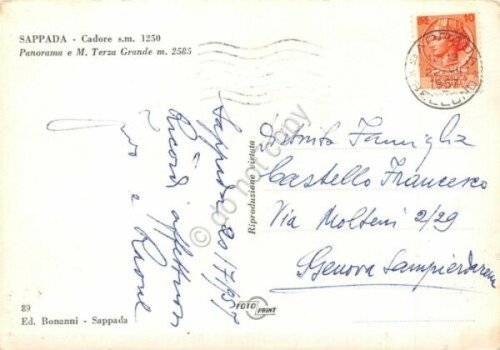 SAPPADA - Cadore s.m. 1250
Panorama e M. Terza Grande m. 2585
Sappada 20/7/957
Ricordi affettuosi
e
10
Riproduzione vietata
Famiglia
Castello Francesco
Via Molteni 2/29
Genova Sampierdarena
89
Ed. Bonanni - Sappada
FOTO PRINT
do not copy